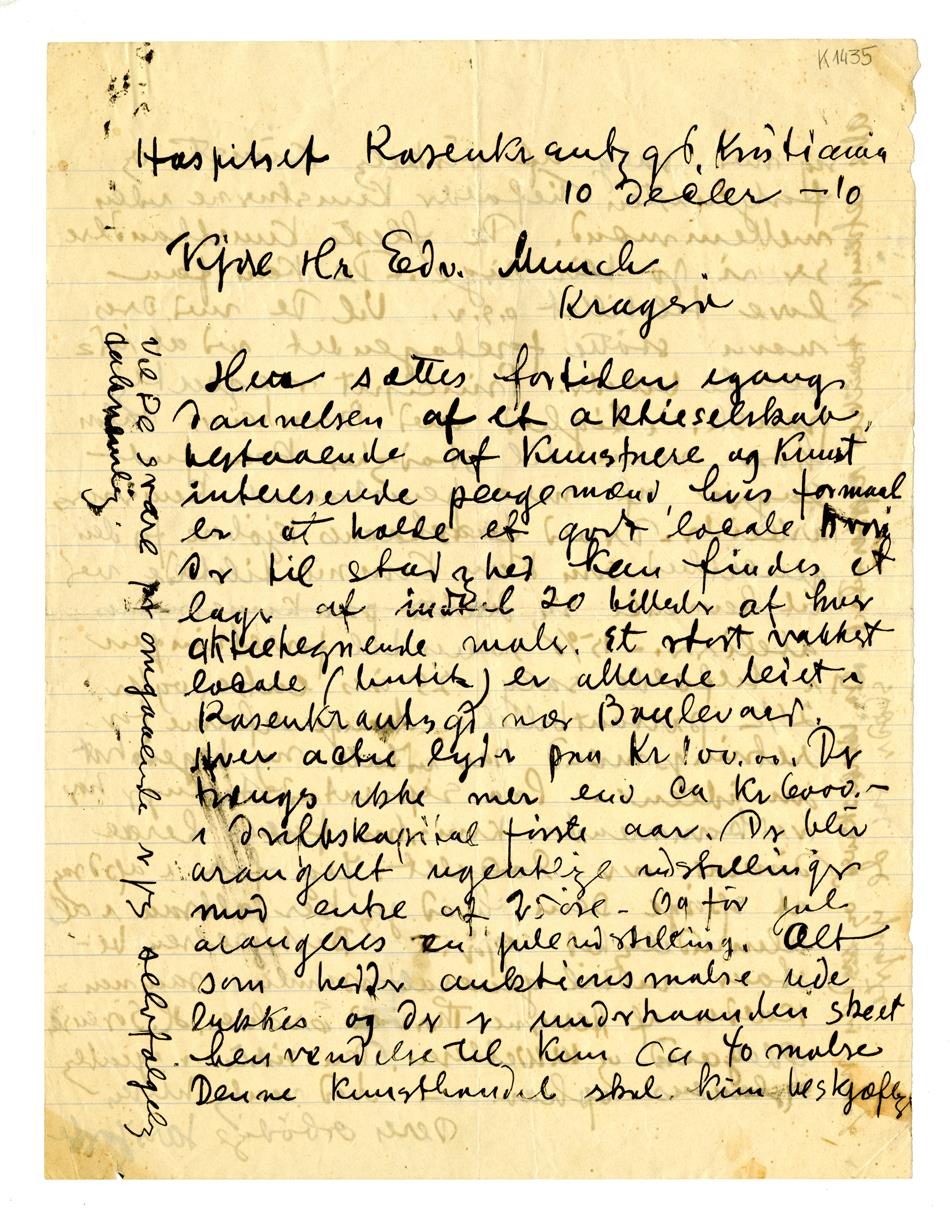 K1435
Hospitset Rosenkrantzg 6, Kristiania
10 Decbr – 10
Kjære Hr Edv. Munch
Kragerø
Her sættes fortiden igang
dannelsen af et aktieselskab,
bestaaende af Kunstnere og Kunst
interesserede pengemænd, hvis formaal
er at holde et godt locale hvori
der til stadighed kan findes et
lager af indtil 20 billeder af hver
aktietegnende maler. Et stort vakkert
locale (butik) er allerede leiet i
Rosenkrantzgt nær Boulevard.
Hver actie lyder paa Kr 100.00. Der
trænges ikke mer end Ca Kr 6000.–
i driftskapital første aar. Der blir
arangeret ugentlige udstillinger
mod entre af 25 øre – Og før jul
arangeres en juleudstilling. Alt
som heder auktionsmalere ude
lukkes og der er underhaanden skeet
henvendelse til kun Ca 40 malere
Denne Kunsthandel skal kun beskjæftige
Vil De svare pr omgaaende er jeg selvfølgelig
taknemlig